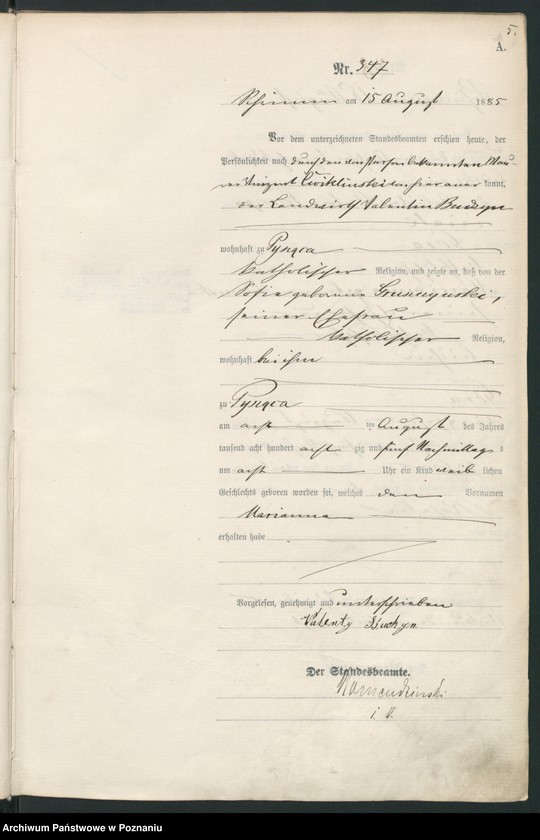 5.
A.
Nr. 347
am 15 August 1885
Vor dem unterzeichneten Standesbeamten erschien heute, der
Persönlichkeit nach durch den von Person bekannten Mau-
rer Vinzent Cwiklinski von hier aner kannt,
der Landwirth Valentin
wohnhaft zu
katholischer Religion, und zeigte an, daß von der
Sofie geborene
seiner Ehefrau
katholischer Religion,
wohnhaft bei ihm
zu
am acht ten August des Jahres
tausend acht hundert acht zig und fünf Nachmittag s
um acht Uhr ein Kind weib lichen
Geschlechts geboren worden sei, welches den Vornamen
Marianna
erhalten habe
Vorgelesen, genehmigt und unterschrieben
Valenty
Der Standesbeamte.
i. V.
Archiwum Państwowe w Poznaniu